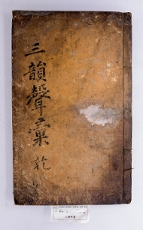 三韻聲彙 乾